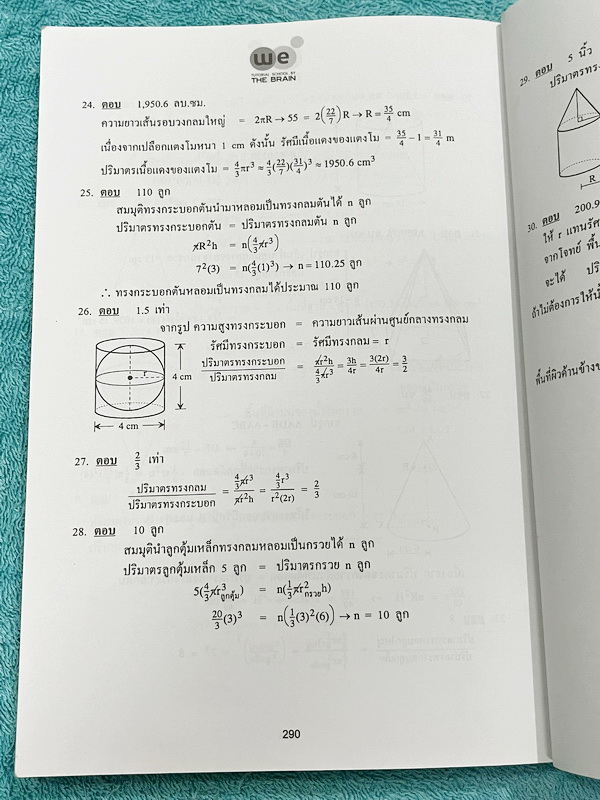 we
TUTORIAL SCHOOL BY
THE BRAIN
24. ตอบ 1,950.6 ลบ.ซม.
ความยาวเส้นรอบวงกลมใหญ่ = 2πR → 55 = 2(22/7) R → R = 35/4 cm
เนื่องจากเปลือกแตงโมหนา 1 cm ดังนั้น รัศมีเนื้อแดงของแตงโม = 35/4 − 1 = 31/4 m
ปริมาตรเนื้อแดงของแตงโม = 4/3 πr³ ≈ 4/3 (22/7)(31/4)³ ≈ 1950.6 cm³
25. ตอบ 110 ลูก
สมมุติทรงกระบอกตันนำมาหลอมเป็นทรงกลมตันได้ n ลูก
ปริมาตรทรงกระบอกตัน = ปริมาตรทรงกลมตัน n ลูก
πR²h = n(4/3 πr³)
7²(3) = n(4/3 (1)³) → n = 110.25 ลูก
∴ ทรงกระบอกตันหลอมเป็นทรงกลมได้ประมาณ 110 ลูก
26. ตอบ 1.5 เท่า
จากรูป ความสูงทรงกระบอก = ความยาวเส้นผ่านศูนย์กลางทรงกลม
รัศมีทรงกระบอก = รัศมีทรงกลม = r
ปริมาตรทรงกระบอก/ปริมาตรทรงกลม = πr²h / (4/3 πr³) = 3h/4r = 3(2r)/4r = 3/2
r
4 cm
4 cm
27. ตอบ 2/3 เท่า
ปริมาตรทรงกลม/ปริมาตรทรงกระบอก = (4/3 πr³)/(πr²h) = (4/3 r³)/(r²(2r)) = 2/3
28. ตอบ 10 ลูก
สมมุตินำลูกตุ้มเหล็กทรงกลมหลอมเป็นกรวยได้ n ลูก
ปริมาตรลูกตุ้มเหล็ก 5 ลูก = ปริมาตรกรวย n ลูก
5(4/3 πr³ลูกตุ้ม) = n(1/3 πr²กรวย h)
20/3 (3)³ = n(1/3 (3)²(6)) → n = 10 ลูก
290
29. ตอบ 5 นิ้ว
ปริมาตรทรง
R
30. ตอบ 200.9
ให้ r แทนรัศ
จากโจทย์ พื้น
จะได้ ปริ
ถ้าไม่ต้องการให้น้
พื้นที่ผิวด้านข้างข